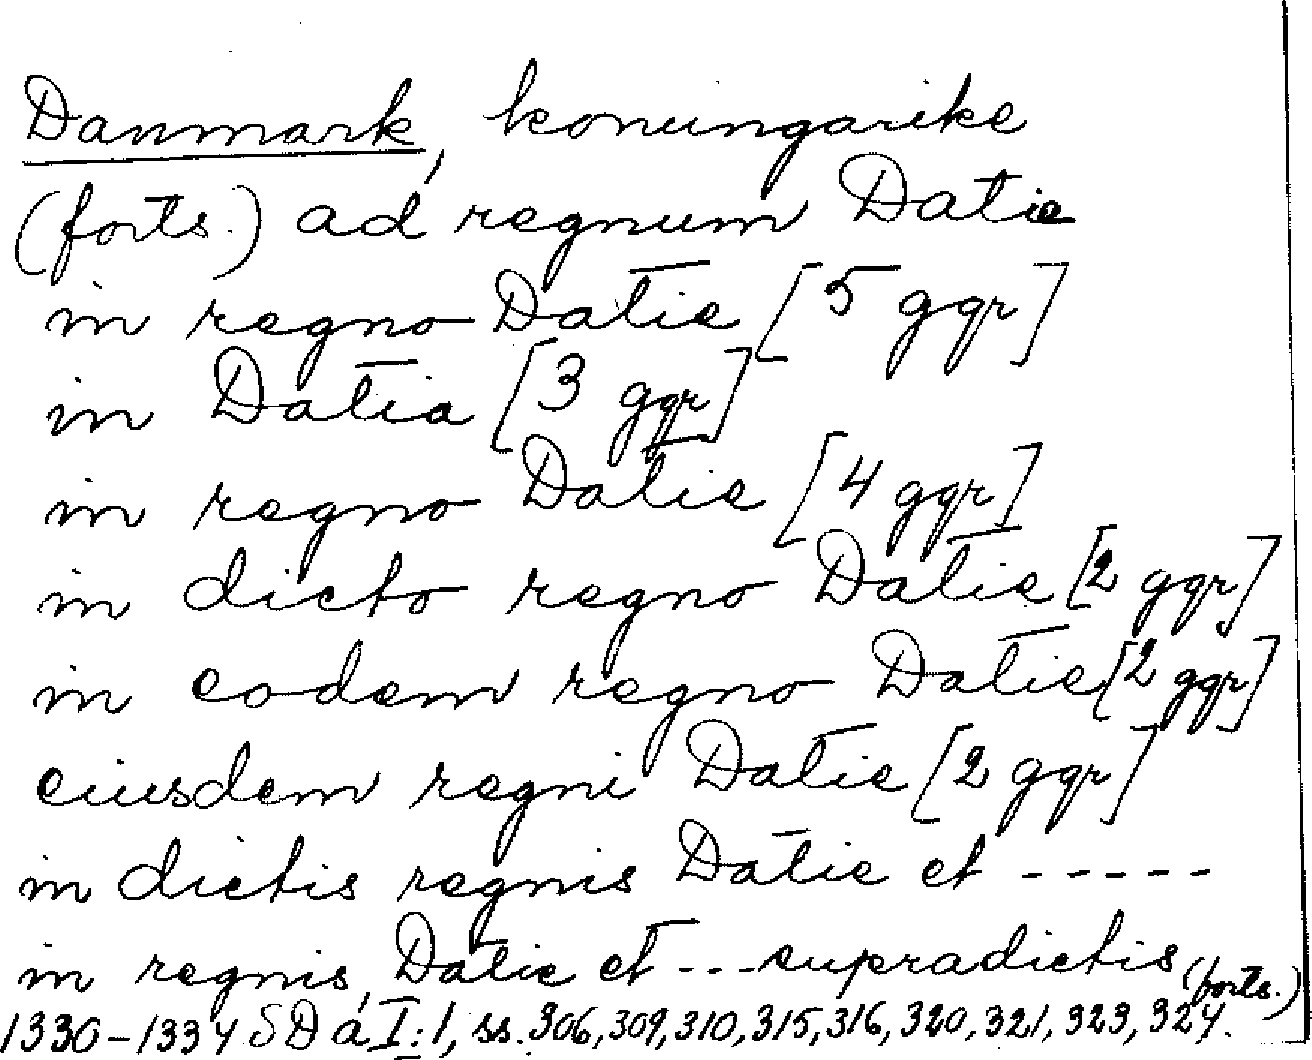 Danmark, konungarike
(forts.) ad regnum Datie
in regno Datie [5 ggr]
in Datia [3 ggr]
in regno Datie [4 ggr]
in dicto regno Datie [2 ggr]
in eodem regno Datie [2 ggr]
eiusdem regni Datie [2 ggr]
in dictis regnis Datie et -----
in regnis Datie et --- supradictis (forts.)
1330-1334 SD á I:1, ss. 306, 309, 310, 315, 316, 320, 321, 323, 324.